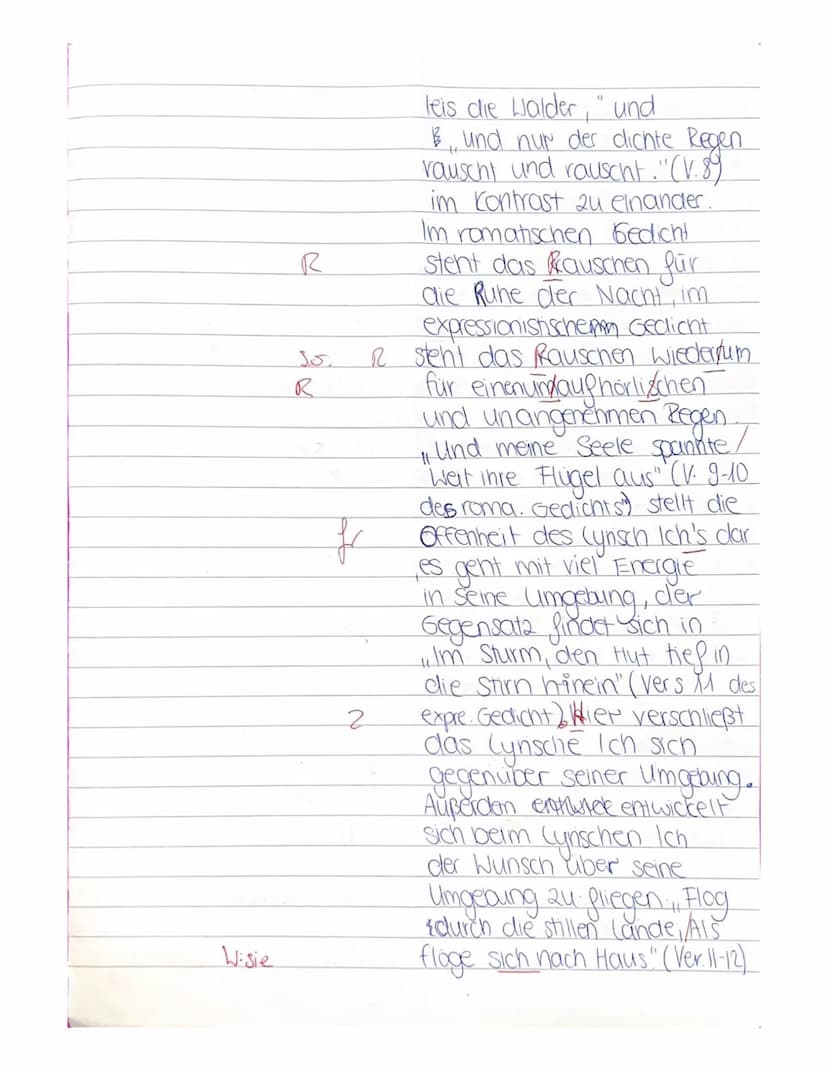 leis die Wälder," und
„und nur der dichte Regen
rauscht und rauscht." (V. 8)
im Kontrast zu einander.
Im romatischen Gedicht
R steht das Rauschen für
die Ruhe der Nacht, im
expressionistischem Gedicht
So. R steht das Rauschen wiederum
R für einen undaufhörlischen
und unangenehmen Regen.
„Und meine Seele spannte /
Weit ihre Flügel aus" (V. 9-10
des roma. Gedichts) stellt die
fr Offenheit des Lyrisch Ich's dar
, es geht mit viel Energie
in seine Umgebung, der
Gegensatz findet sich in
„Im Sturm, den Hut tief in
die Stirn hinein" (Vers 11 des
Z expre. Gedicht). Hier verschließt
das Lyrische Ich sich
gegenüber seiner Umgebung.
Außerden entwickelt
sich beim Lyrischen Ich
der Wunsch über seine
Umgebung zu fliegen. „Flog
durch die stillen Lande, / Als
W: sie flöge sich nach Haus" (Ver. 11-12)